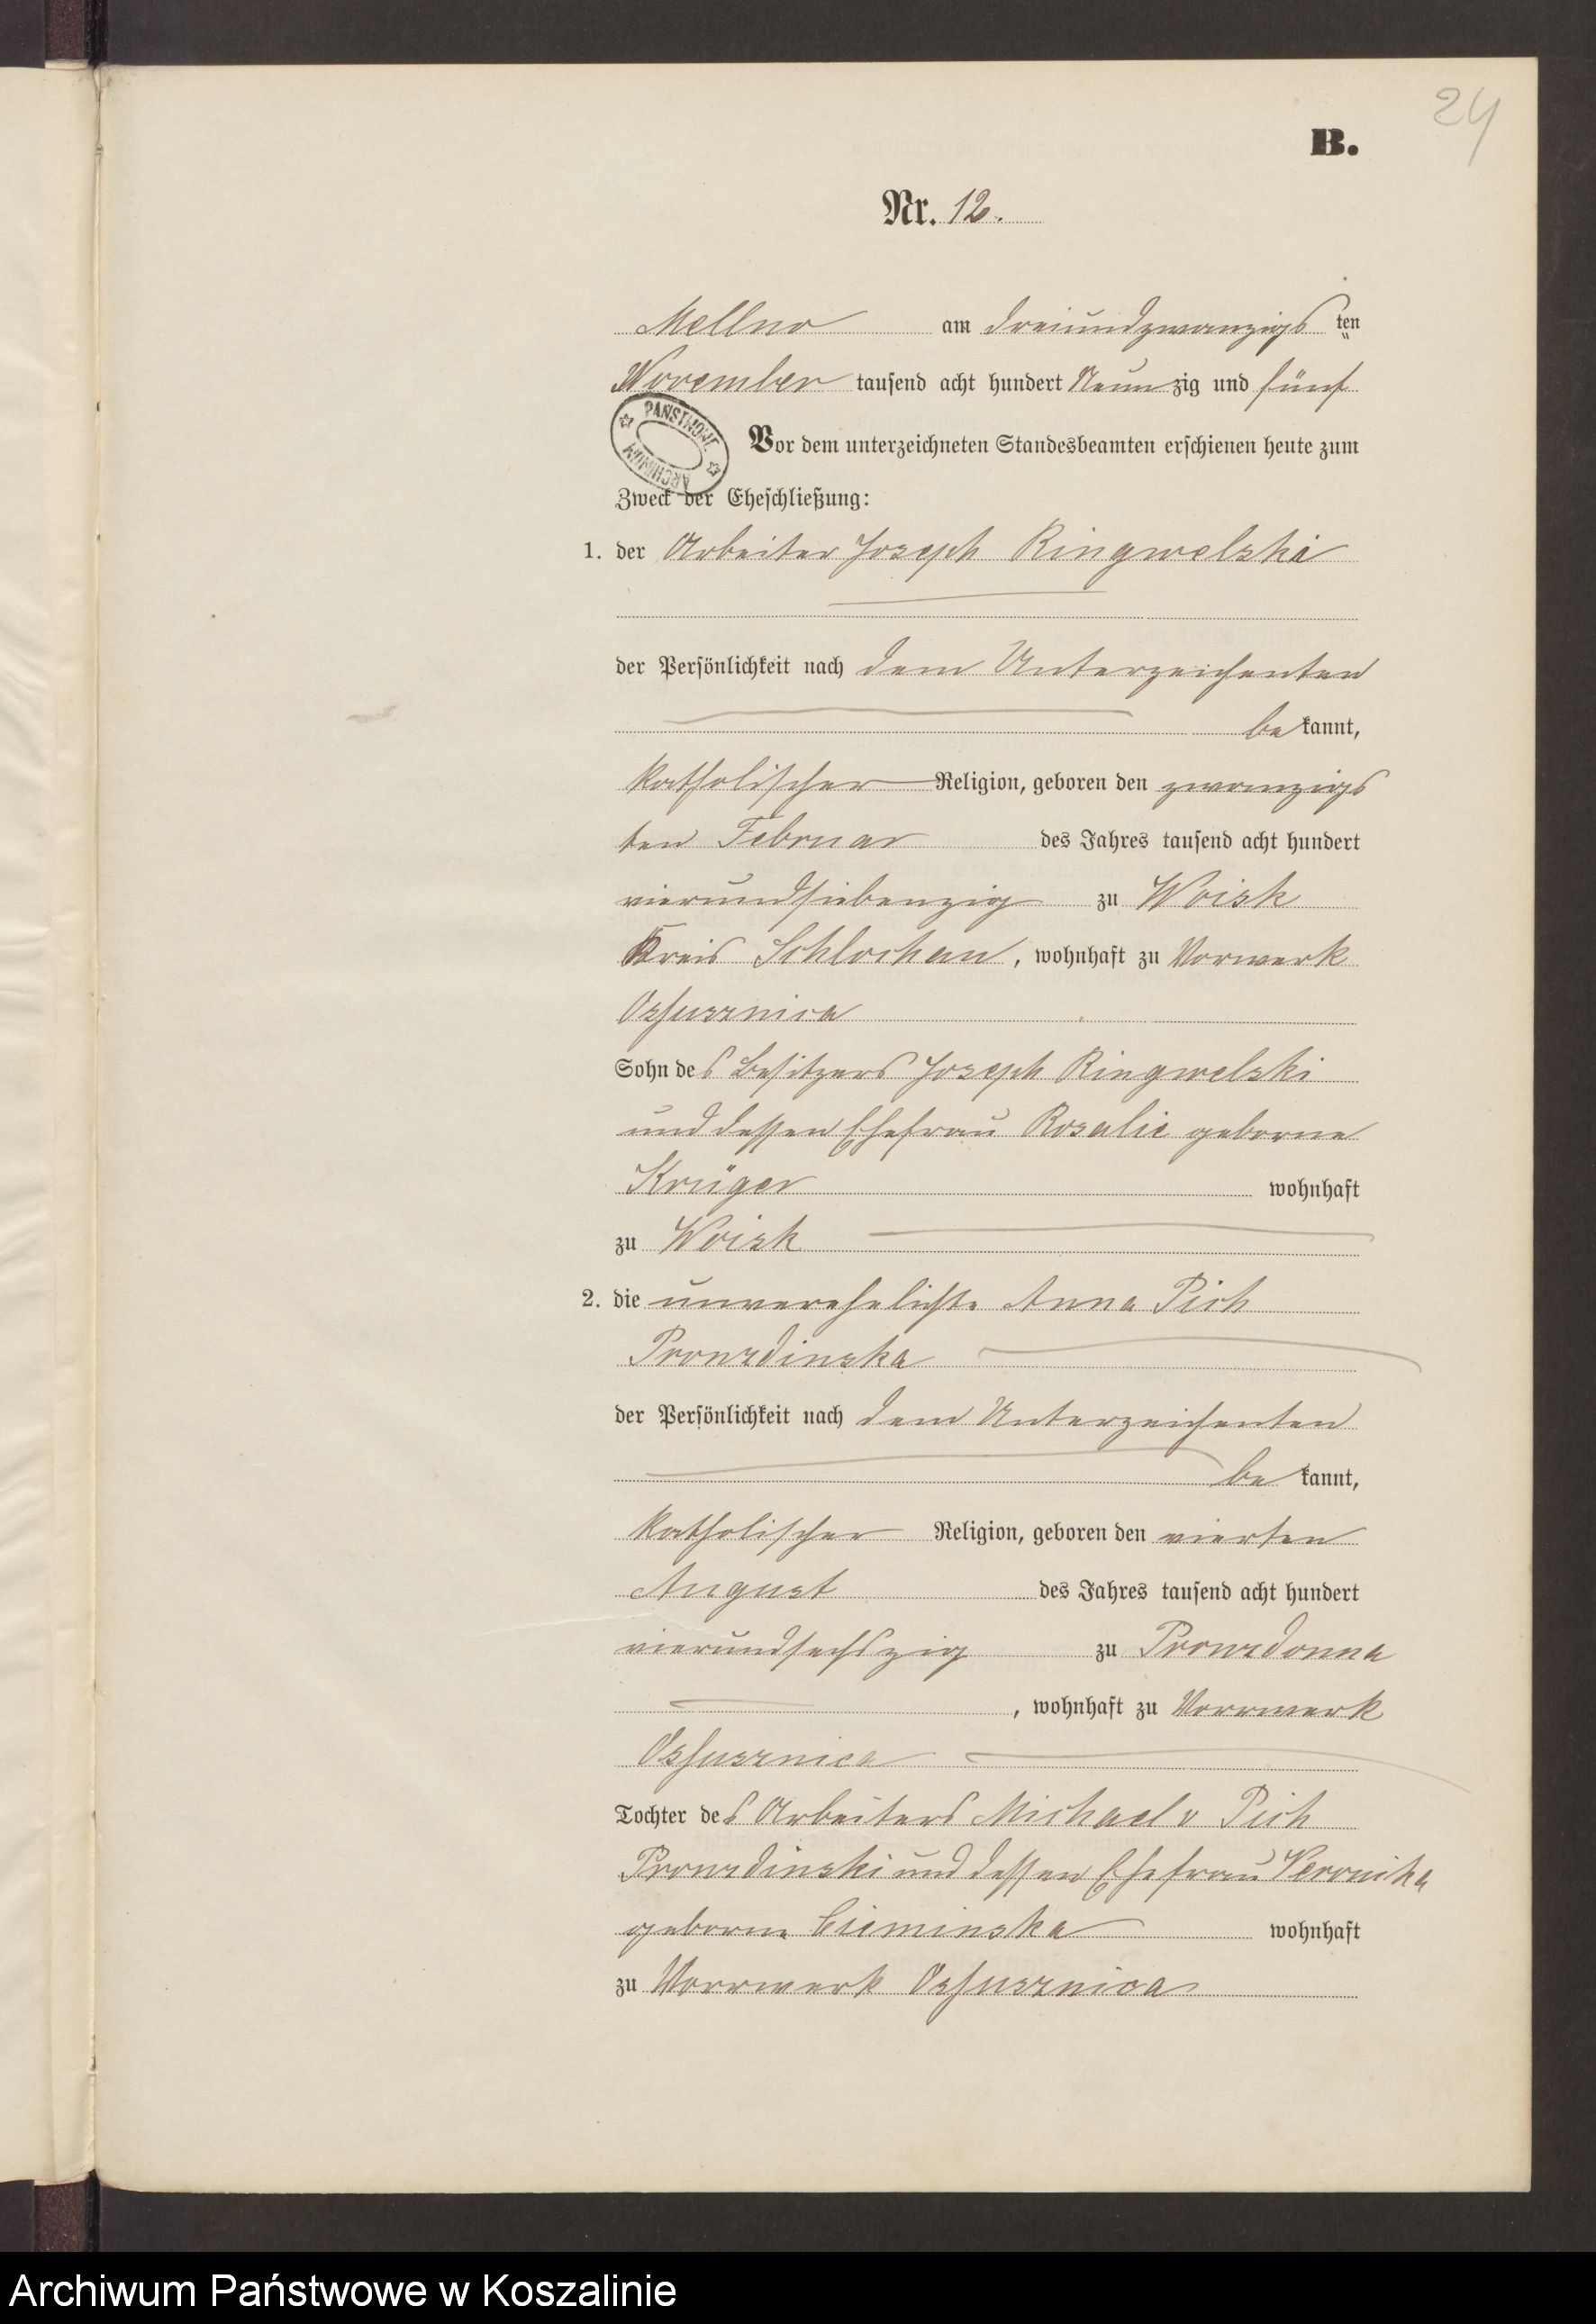 24
B.
Nr. 12.
Mellno am dreiundzwanzigs ten
November tausend acht hundert Neunzig und fünf
PAŃSTWOWE ARCHIWUM
Vor dem unterzeichneten Standesbeamten erschienen heute zum
Zweck der Eheschließung:
1. der Arbeiter Joseph Ringwelski
der Persönlichkeit nach dem Unterzeichenten
be kannt,
katholischer Religion, geboren den zwanzigs
ten Februar des Jahres tausend acht hundert
vierundsiebenzig zu Woisk
Kreis Schlochau, wohnhaft zu Vorwerk
Ossusznica
Sohn des Besitzers Joseph Ringwelski
und dessen Ehefrau Rosalie geborne
Krüger wohnhaft
zu Woisk
2. die unverehelichte Anna Pich
Pronzdinska
der Persönlichkeit nach dem Unterzeichenten
be kannt,
katholischer Religion, geboren den vierten
August des Jahres tausend acht hundert
vierundsechszig zu Pronzdonna
, wohnhaft zu Vorrwerk
Ossusznica
Tochter des Arbeiters Michael v Pich
Pronzdinski und dessen Ehefrau Veronika
geborne Cieminska wohnhaft
zu Vorrwerk Ossusznica
Archiwum Państwowe w Koszalinie